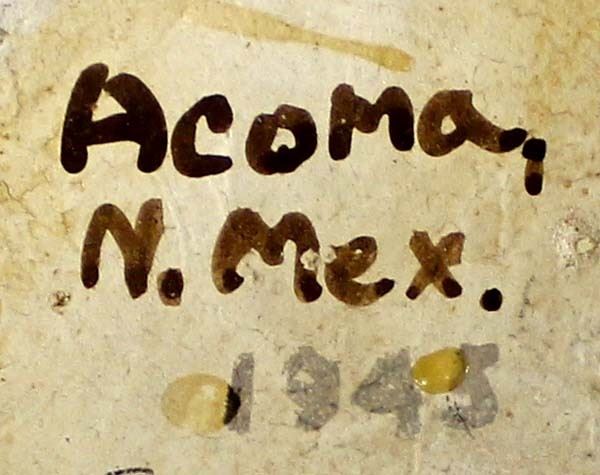 Acoma,
N. Mex.
1945